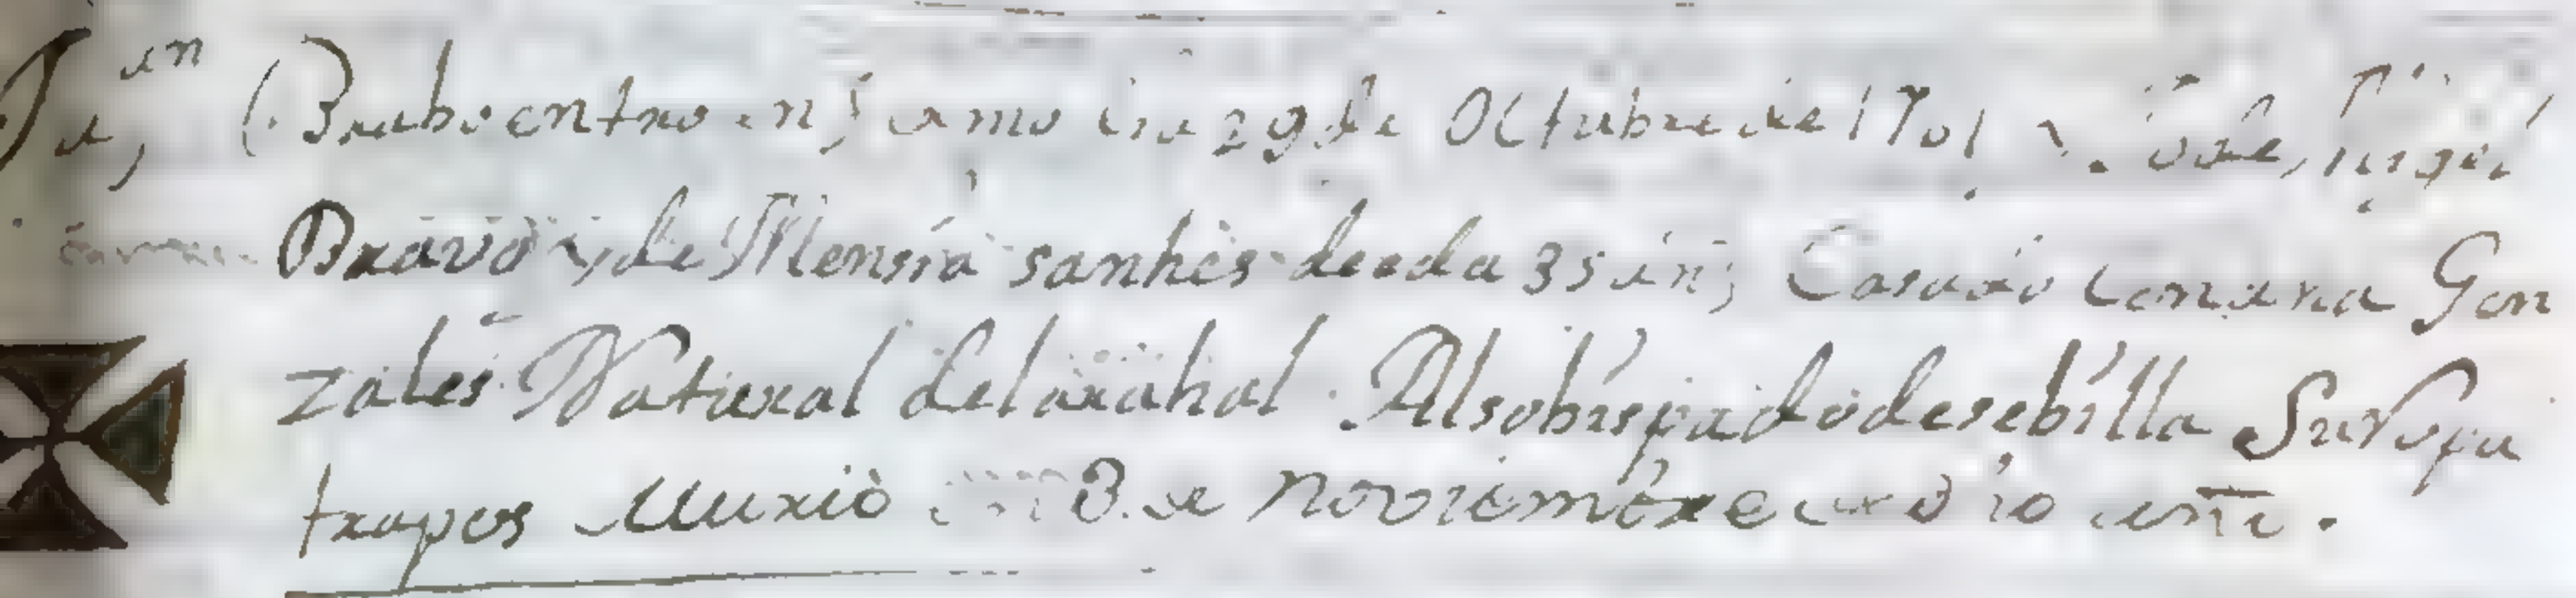 Juan Brabo entro en cama en 29 de Octubre de 1701 hijo de Miguel
Bravo y de Mensia sanhes de eda 35 añs Casado con ana Gon
zales Natural del arahal Alsobispado de sebilla Su Ropa
trapos Murió en 8 de Noviembre de dicho año.